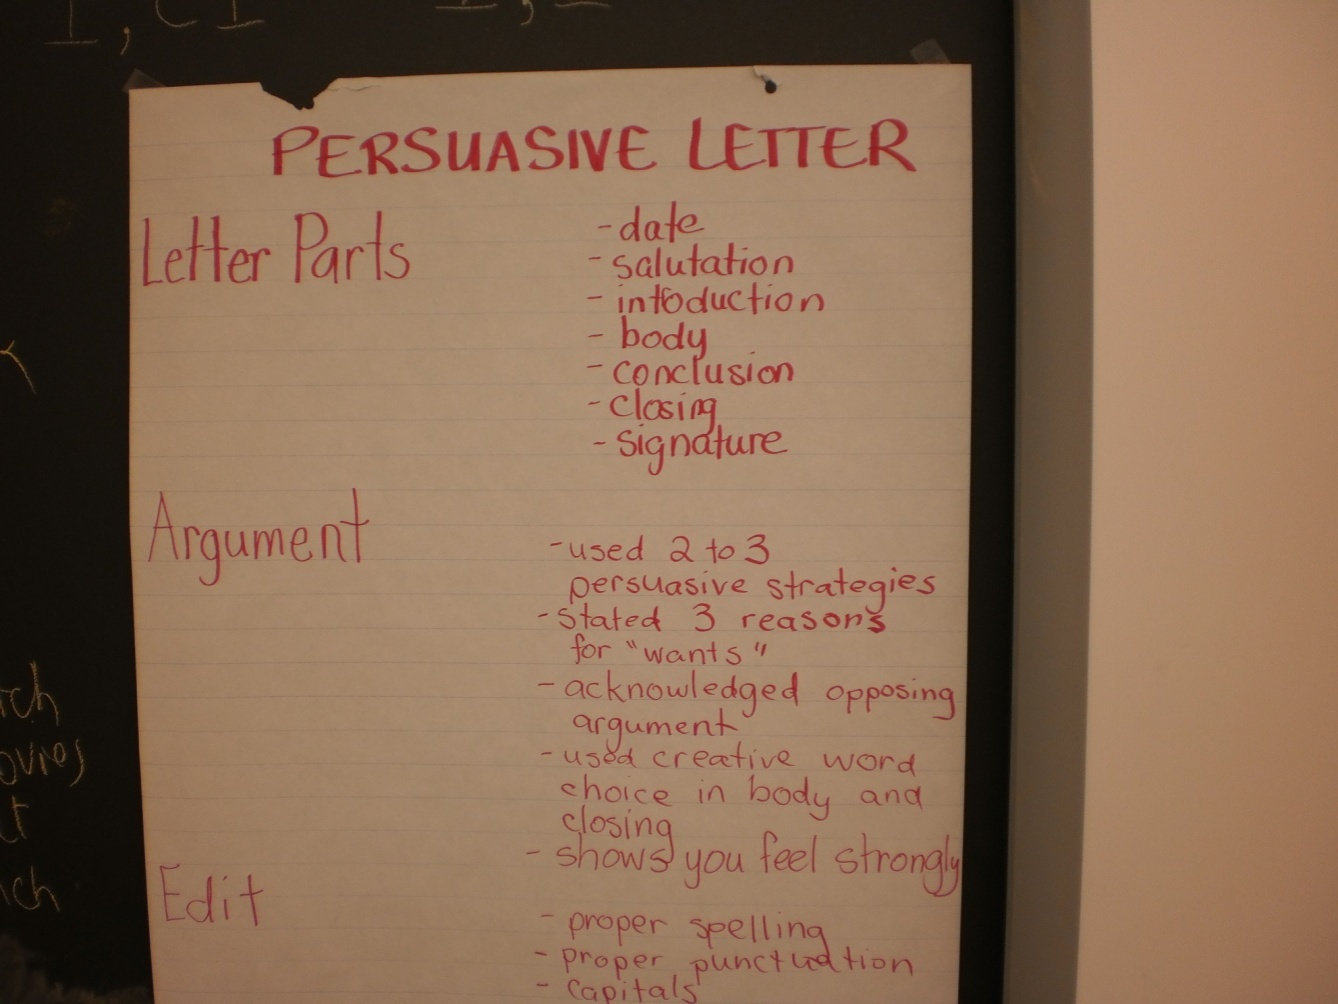 PERSUASIVE LETTER
Letter Parts
- date
- salutation
- intoduction
- body
- conclusion
- closing
- signature
Argument
- used 2 to 3
persuasive strategies
- stated 3 reasons
for "wants"
- acknowledged opposing
argument
- used creative word
choice in body and
closing
- shows you feel strongly
Edit
- proper spelling
- proper punctuation
- capitals